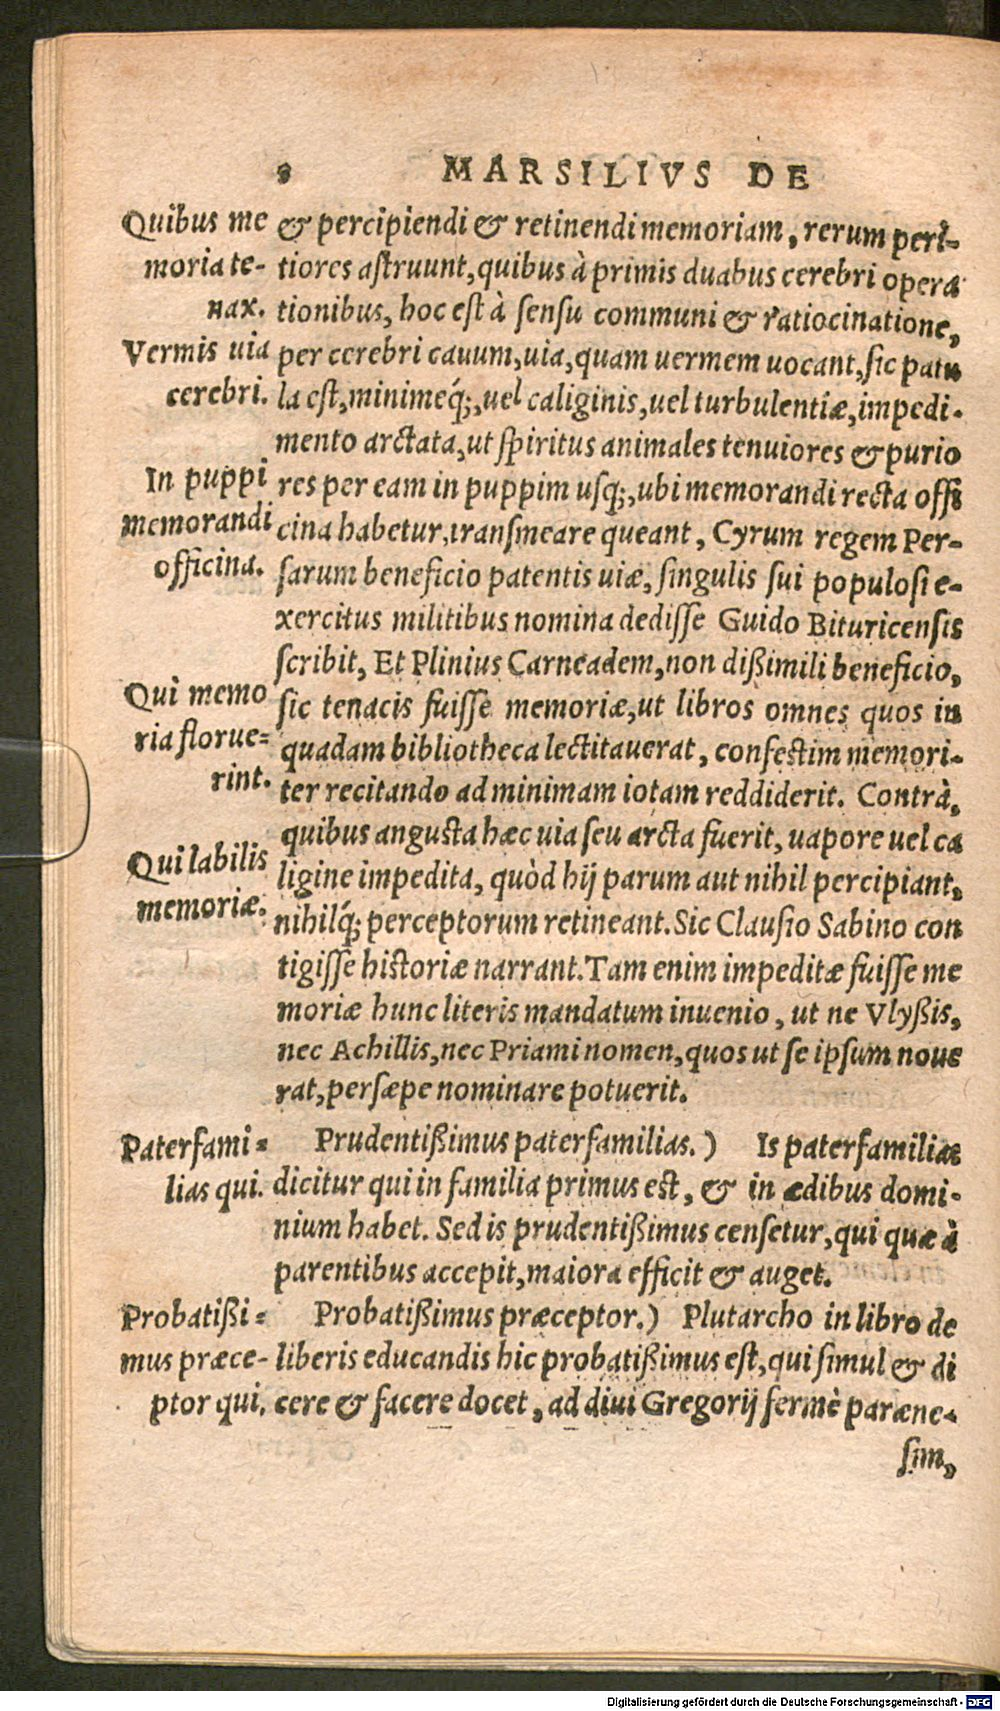 8 MARSILIVS DE
Quibus me
moria te-
nax.
Vermis uia
cerebri.
In puppi
memorandi
officina.
Qui memo
ria florue-
rint.
Qui labilis
memoriæ.
& percipiendi & retinendi memoriam, rerum peri-
tiores astruunt, quibus à primis duabus cerebri opera
tionibus, hoc est à sensu communi & ratiocinatione,
per cerebri cauum, uia, quam uermem uocant, sic patu
la est, minimeq́;, uel caliginis, uel turbulentiæ, impedi-
mento arctata, ut spiritus animales tenuiores & purio
res per eam in puppim usq;, ubi memorandi recta offi
cina habetur, transmeare queant, Cyrum regem Per-
sarum beneficio patentis uiæ, singulis sui populosi e-
xercitus militibus nomina dedisse Guido Bituricensis
scribit, Et Plinius Carneadem, non dißimili beneficio,
sic tenacis fuisse memoriæ, ut libros omnes quos in
quadam bibliotheca lectitauerat, confestim memori-
ter recitando ad minimam iotam reddiderit. Contrà,
quibus angusta hæc uia seu arcta fuerit, uapore uel ca
ligine impedita, quòd hij parum aut nihil percipiant,
nihilq́; perceptorum retineant. Sic Clausio Sabino con
tigisse historiæ narrant. Tam enim impeditæ fuisse me
moriæ hunc literis mandatum inuenio, ut ne Vlyßis,
nec Achillis, nec Priami nomen, quos ut se ipsum noue
rat, persæpe nominare potuerit.
Paterfami-
lias qui.
Prudentißimus paterfamilias.) Is paterfamilias
dicitur qui in familia primus est, & in ædibus domi-
nium habet. Sed is prudentißimus censetur, qui quæ à
parentibus accepit, maiora efficit & auget.
Probatißi-
mus præce-
ptor qui.
Probatißimus præceptor.) Plutarcho in libro de
liberis educandis hic probatißimus est, qui simul & di
cere & facere docet, ad diui Gregorij fermè paræne-
sim,
Digitalisierung gefördert durch die Deutsche Forschungsgemeinschaft - DFG